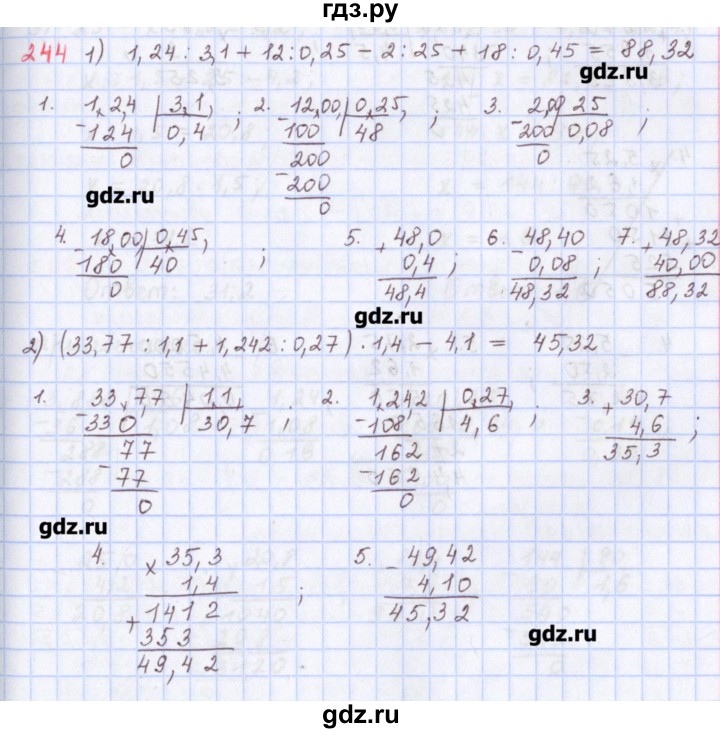 гдз.ру
244 1) 1,24 : 3,1 + 12 : 0,25 - 2 : 25 + 18 : 0,45 = 88,32
gdz.ru
1. 1,2,4 | 3,1, ; 2. 12,00, | 0,25, ; 3. 2,00 | 25 ;
-124 | 0,4 -100 | 48 -200 | 0,08
0 200 0
-200
0
gdz.ru
4. 18,00, | 0,45, ; 5. + 48,0 6. 48,40 7. + 48,32
-180 | 40 0,4 ; -0,08 ; 40,00
0 48,4 48,32 88,32
gdz.ru
2) (33,77 : 1,1 + 1,242 : 0,27) · 1,4 - 4,1 = 45,32
1. 33,7,7 | 1,1, ; 2. 1,24,2 | 0,27, ; 3. + 30,7
-330 | 30,7 -108 | 4,6 4,6 ;
77 162 35,3
-77 -162
0 0
gdz.ru
4. × 35,3 5. - 49,42
1,4 4,10
+ 1412 ; 45,32
353
49,42
gdz.ru
gdz.ru